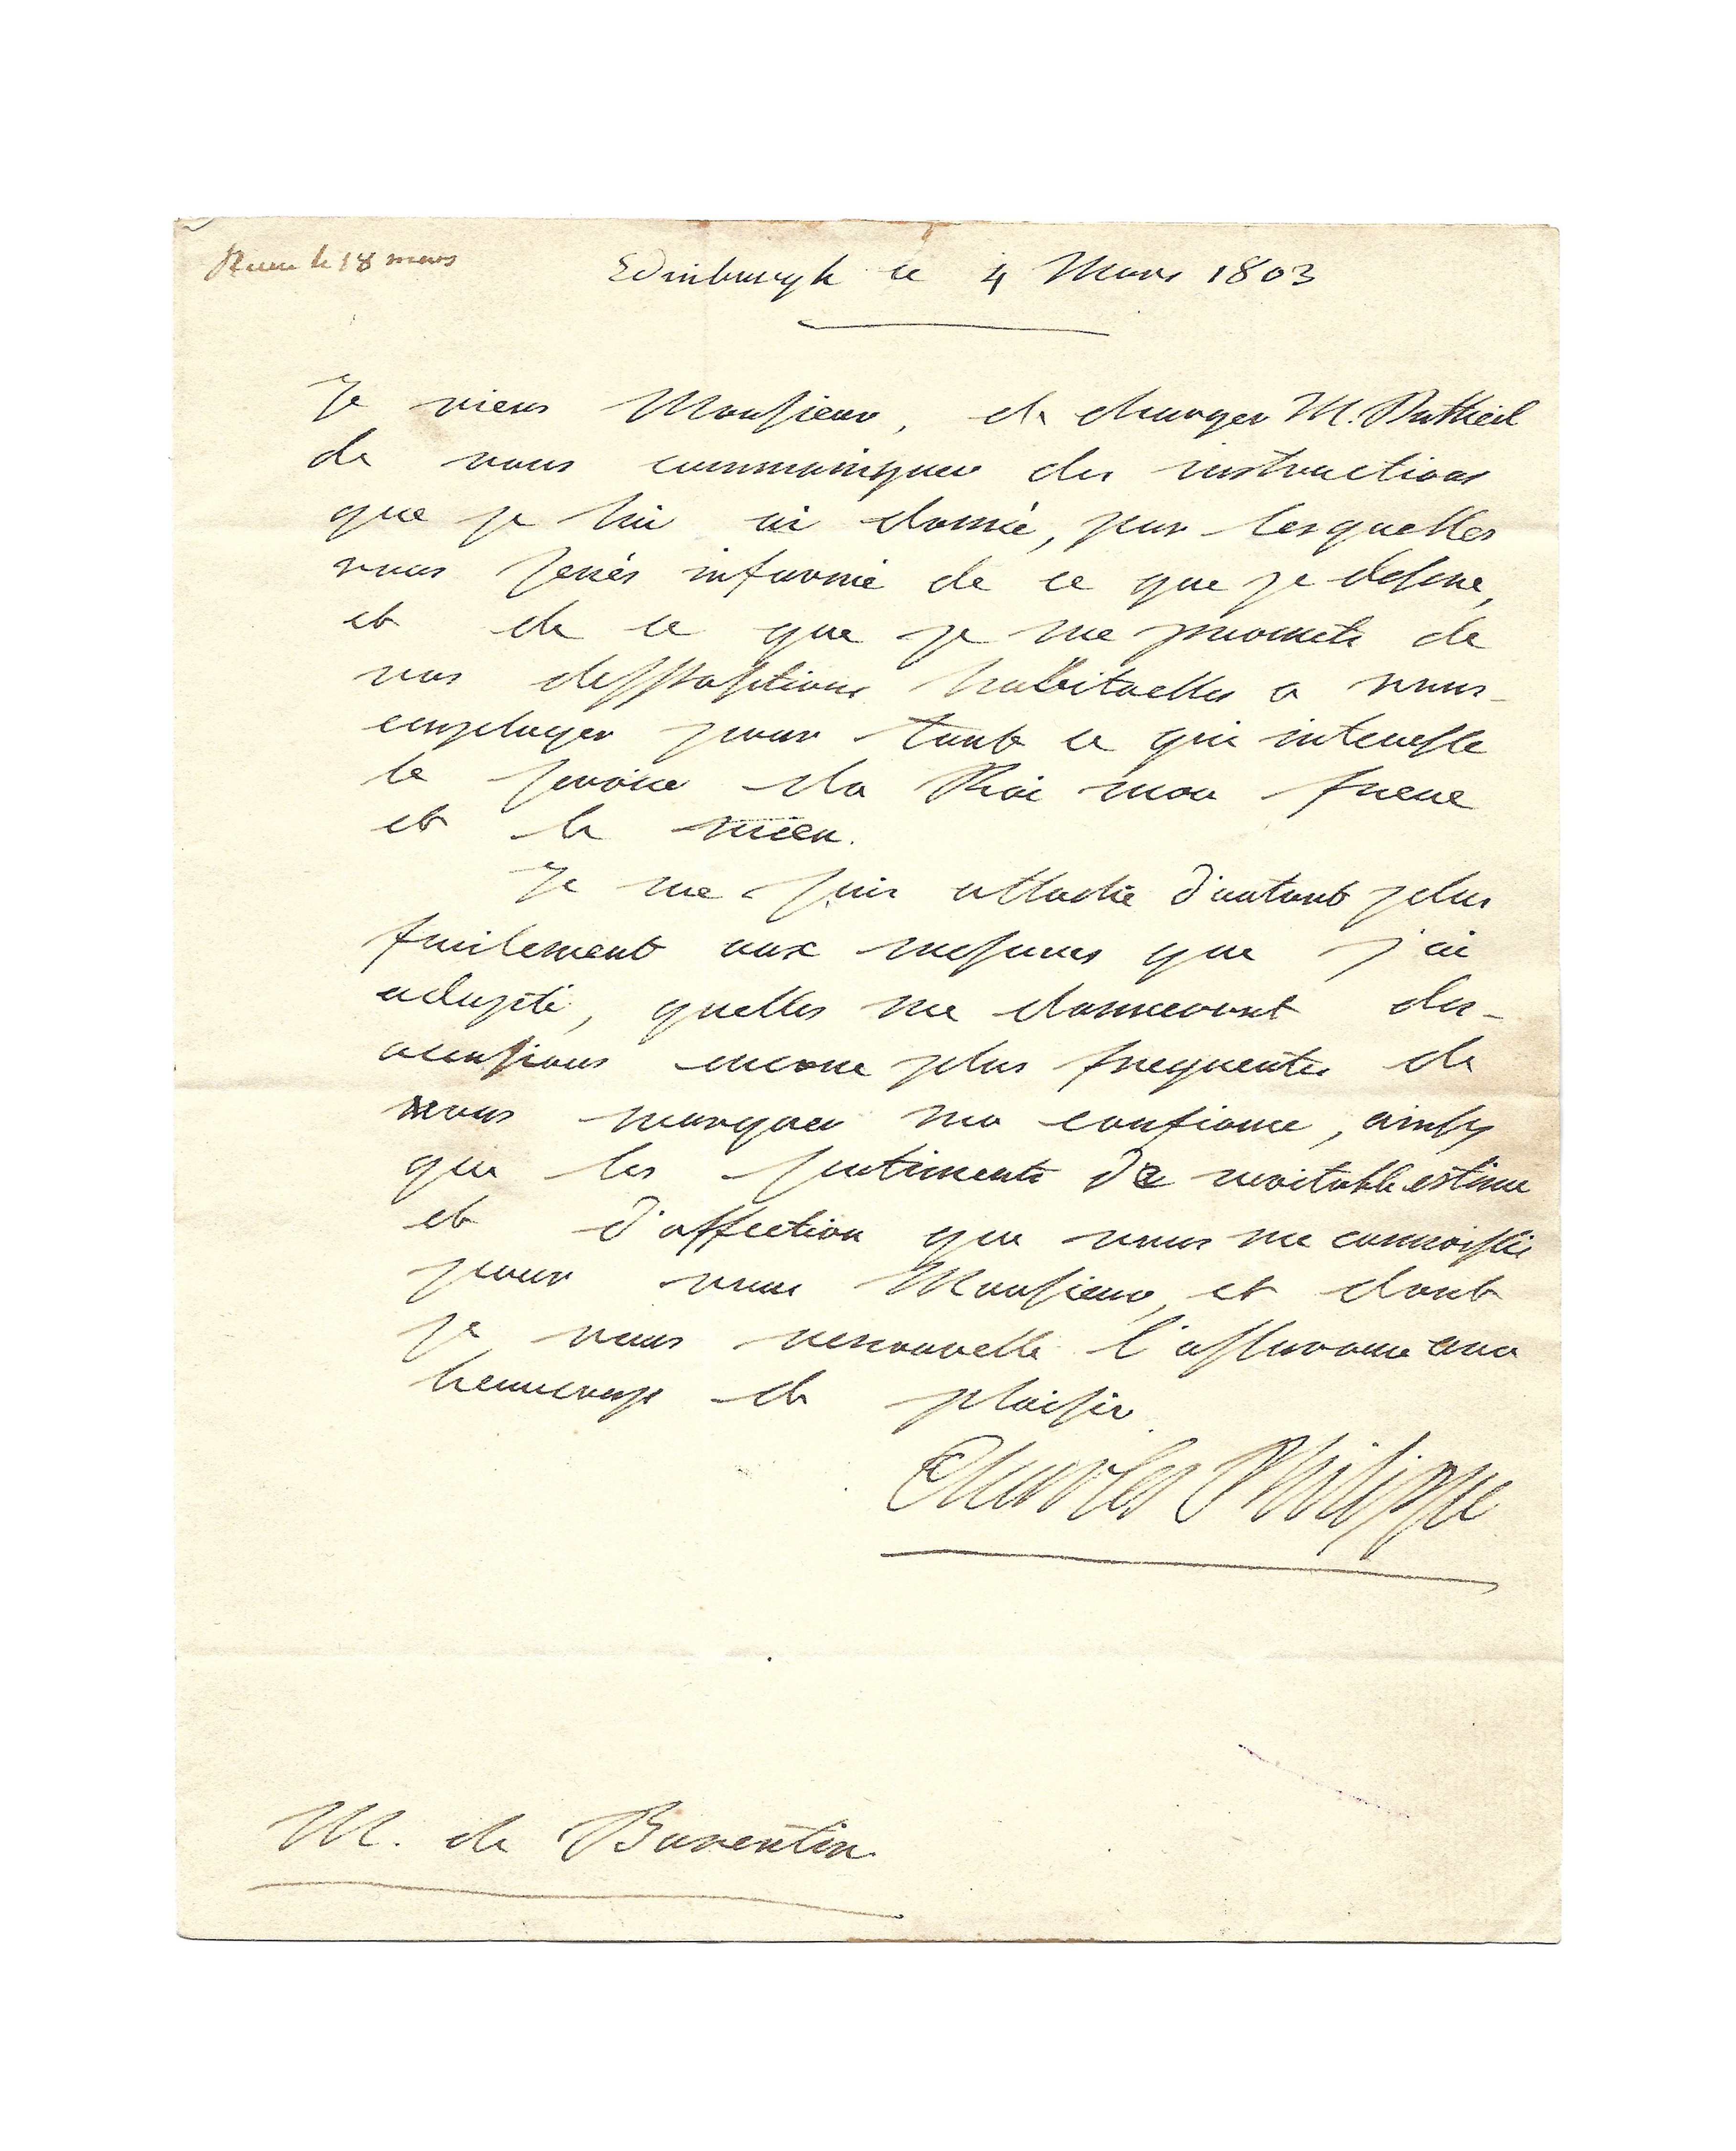 Recue le 18 mars
Edinburgh ce 4 Mars 1803
Je viens Monsieur, de charger M. Dutheil
de vous communiquer des instructions
que je lui ai donné, par lesquelles
vous serés informé de ce que je desire,
et de ce que je me promets de
vos dispositions habituelles a vous
employer pour tout ce qui interesse
le service du Roi mon frere
et le mien.
Je me suis attaché d'autant plus
facilement aux mesures que j'ai
adopté, quelles me donneront des
occasions encore plus frequentes de
vous marquer ma confiance, ainsy
que les sentiments de veritable estime
et d'affection que vous me connoissés
pour vous Monsieur, et dont
je vous renouvelle l'assurance avec
beaucoup de plaisir.
Charles Philippe
M. de Barentin.